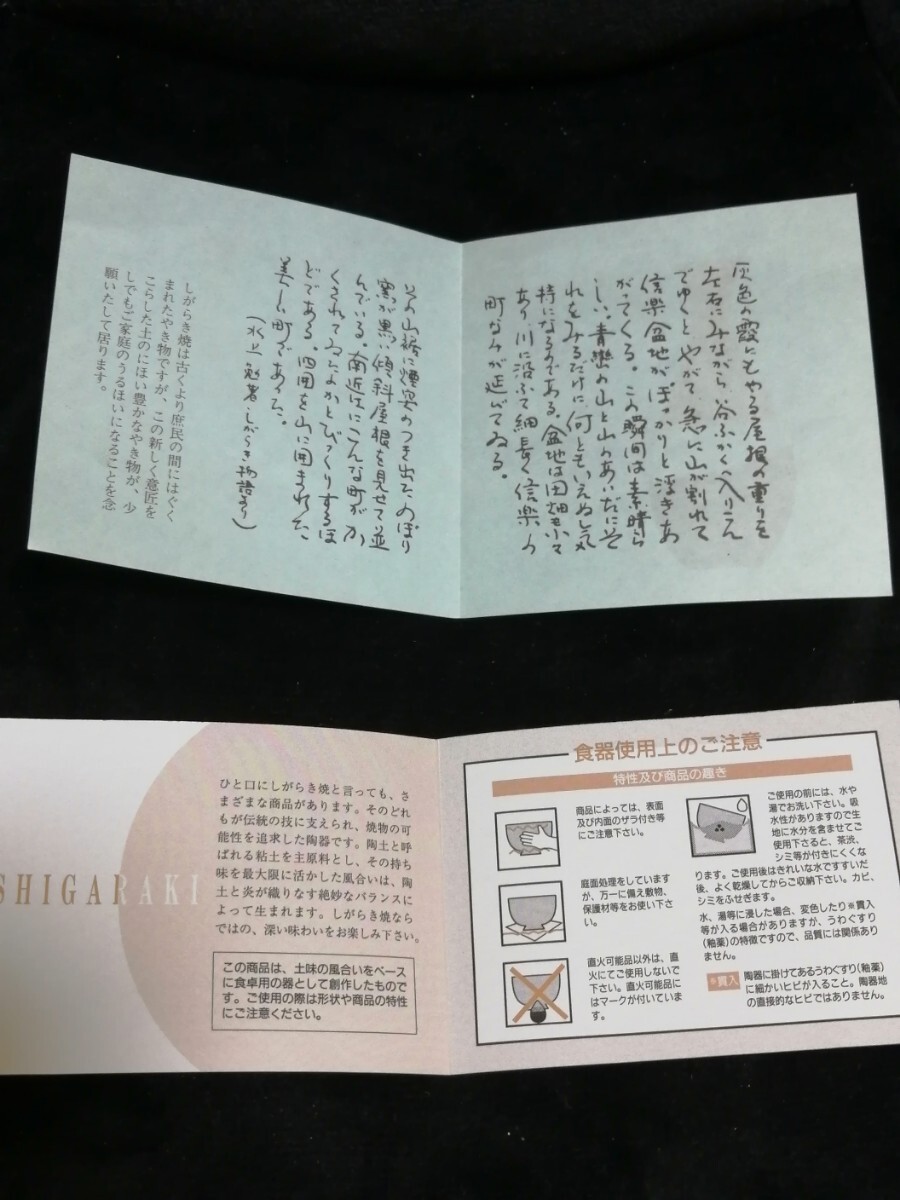 灰色の霞にもやる屋根の重りを
左右にみながら、谷ふかく入りこん
でゆくと、やがて、急に山が割れて
信楽盆地がぽっかりと浮きあ
がってくる。この瞬間は素晴ら
しい。青巒の山と山のあいだにそ
れをみるだけに、何ともいえぬ気
持になるのである。盆地は田畑も小々
あり、川に沿ふて細長く信楽の
町なみが延びてゐる。
その山裾に煙突のつき出た、のぼり
窯が黒い傾斜屋根を見せて並
んでいる。南近江にこんな町がか
くされてゐたかとびっくりするほ
どである。四囲を山に囲まれた
美しい町であった。
(水上勉著・しがらき物語より)
しがらき焼は古くより庶民の間にはぐく
まれたやき物ですが、この新しく意匠を
こらした土のにほい豊かなやき物が、少
しでもご家庭のうるほいになることを念
願いたして居ります。
SHIGARAKI
ひと口にしがらき焼と言っても、さ
まざまな商品があります。そのどれ
もが伝統の技に支えられ、焼物の可
能性を追求した陶器です。陶土と呼
ばれる粘土を主原料とし、その持ち
味を最大限に活かした風合いは、陶
土と炎が織りなす絶妙なバランスに
よって生まれます。しがらき焼なら
ではの、深い味わいをお楽しみ下さい。
この商品は、土味の風合いをベース
に食卓用の器として創作したもので
す。ご使用の際は形状や商品の特性
にご注意ください。
食器使用上のご注意
特性及び商品の趣き
商品によっては、表面
及び内面のザラ付き等
にご注意下さい。
底面処理をしています
が、万一に備え敷物、
保護材等をお使い下さ
い。
直火可能品以外は、直
火にてご使用しないで
下さい。直火可能品に
はマークが付いていま
す。
ご使用の前には、水や
湯でお洗い下さい。吸
水性がありますので生
地に水分を含ませてご
使用下さると、茶渋、
シミ等が付きにくくな
ります。ご使用後はきれいな水ですすいだ
後、よく乾燥してからご収納下さい。カビ、
シミをふせぎます。
水、湯等に浸した場合、変色したり※貫入
等が入る場合がありますが、うわぐすり
(釉薬)の特徴ですので、品質には関係あり
ません。
※貫入 陶器に掛けてあるうわぐすり(釉薬)
に細かいヒビが入ること。陶器地
の直接的なヒビではありません。